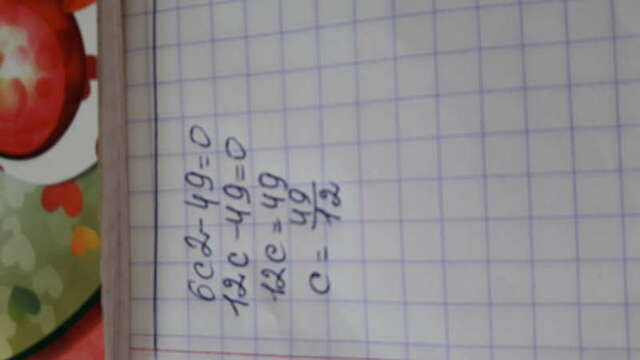 6c2-49=0
12c-49=0
12c=49
c=49/12